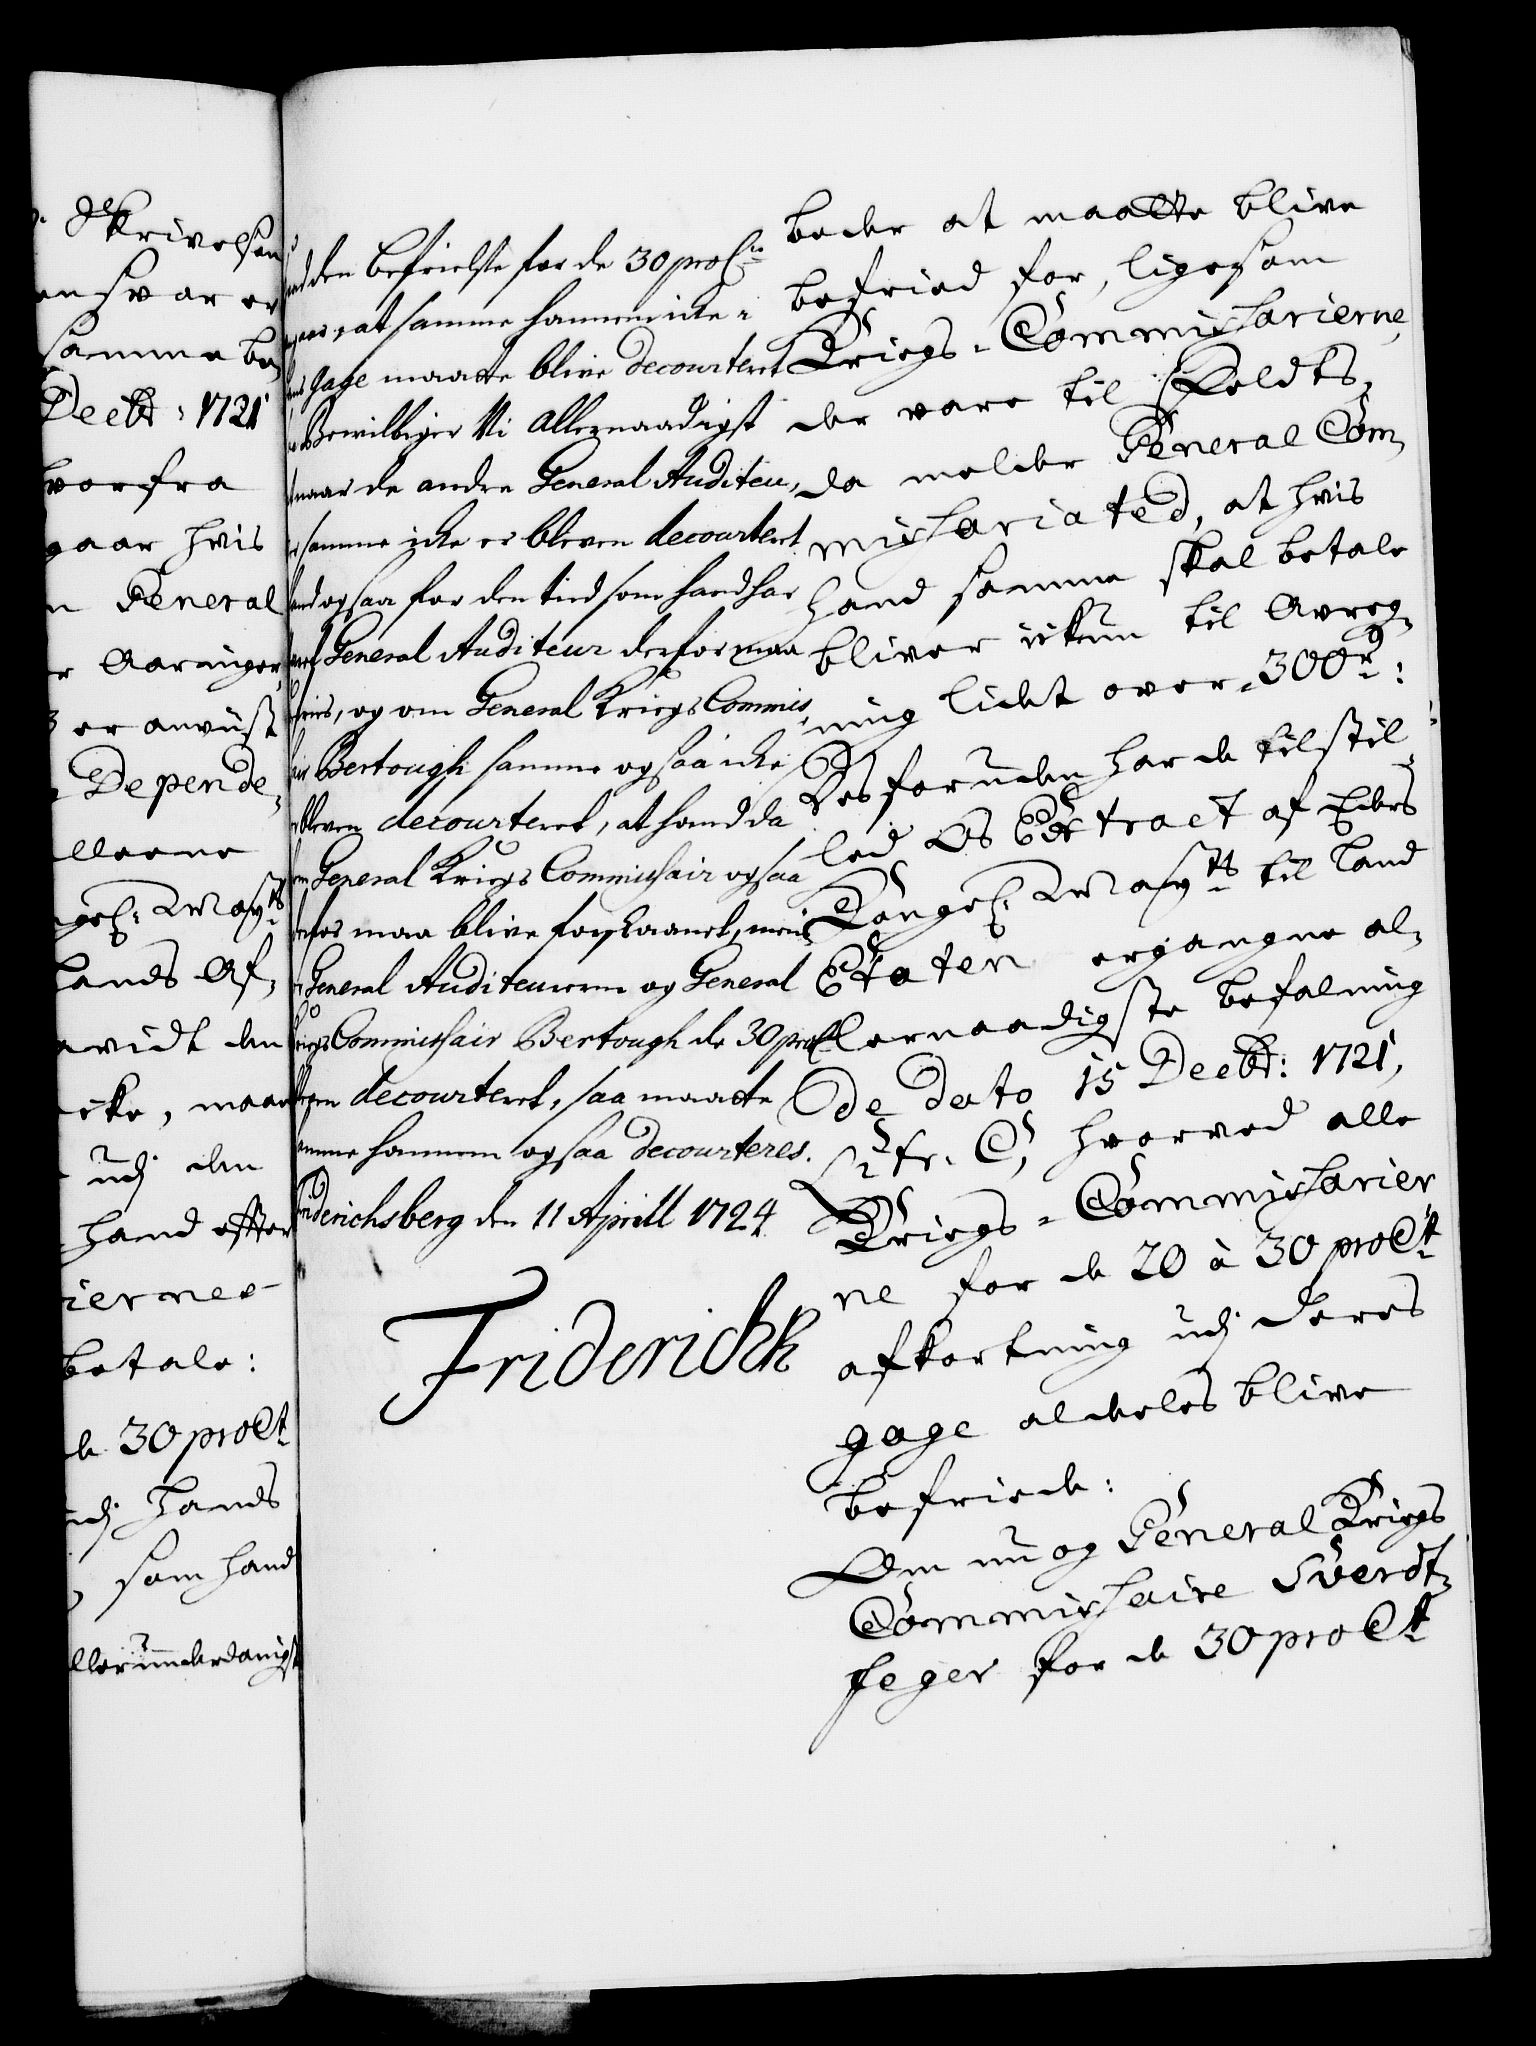 Skrivelsen
ensvar er
samme be
Decbr: 1721
vorfra
gaar hvis
n General
r Aaringer
er anvüst
Depende,
lleene
gel: Mayts
Lands Af,
vidt den
icke, maa
udj den
hand efter
iernes
betale:
de 30 proCt
udj hands
som hand
lleründerdanigst
den befrielse for de 30 proCto
at samme hannem icke i
Gage maatte blive decourteret
Bewilliger Vi Allernaadigst
naar de andre General Auditeu,
samme icke er bleven decourteret
hand ogsaa for den tied som hand har
General Auditeur derfor maa
fries, og om General Kriegs Commis,
air Bertough samme ogsaa icke
bleven decourteret, at hand da
som General Kriegs Commissair ogsaa
derfor maa blive forskaanet, mens
General Auditeurerne og General
Kriegs Commissair Bertough de 30 proCto
decourteret, saa maatte
samme hannem ogsaa decourteres.
Friderichsberg den 11 Aprill 1724
Friderichh
beder at maatte blive
befried for, ligesom
Kriegs-Commissarierne,
der vare til Feldts,
da melder General Com,
missariated, at hvis
hand samme skal betale
bliver ickun til Avreg,
ning lidt over 300 rd:
Desforuden har de tilstil,
led Os Extract af Eders
Kongel: Mayts til Land
Etaten ergangne al,
lernaadigste befalning
De Dato 15 Decbr: 1721,
Litr. C, hvorved alle
Kriegs-Commissarier
ne for de 20 à 30 proCt
afkortning udj deres
gage aldeles blive
befriede:
Om nu og General Kriegs
Commissaire Sverdt,
feger for de 30 proCt